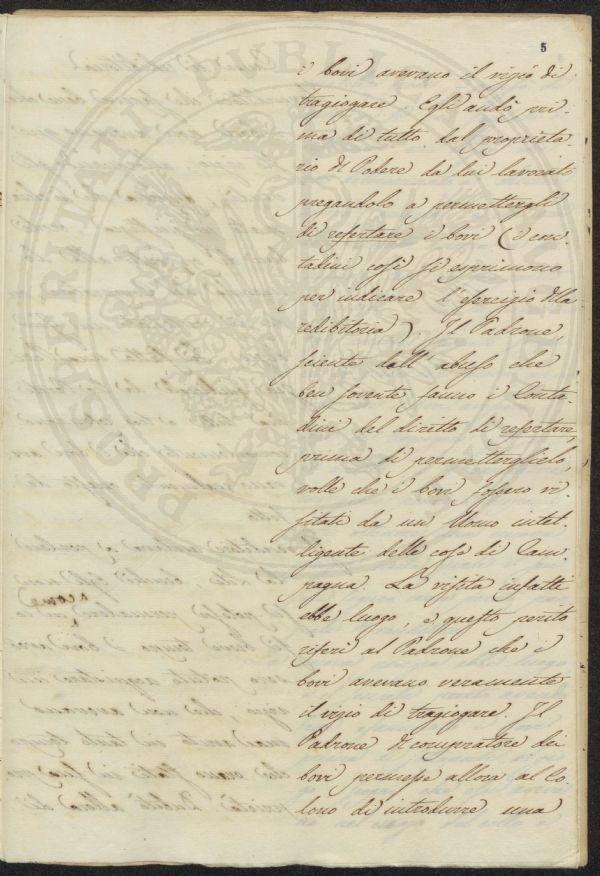 5
i bovi avevano il vizio di
tragiogare. Egli andò pri-
ma di tutto dal proprieta-
rio del Podere da lui lavorato
pregandolo a permettergli
di refertare i bovi (i con-
tadini così si esprimono
per indicare l'esercizio della
redibitoria). Il Padrone,
sciente dall'abuso che
ben sovente fanno i Conta-
dini del diritto di refertare,
prima di permetterglielo,
volle che i bovi fossero vi-
sitati da un Uomo intel-
ligente delle cose di Cam-
pagna. La visita infatti
ebbe luogo, e questo perito
riferì al Padrone che i
bovi avevano veramente
il vizio di tragiogare. Il
Padrone del compratore dei
bovi permesse allora al Co-
lono di introdurre una